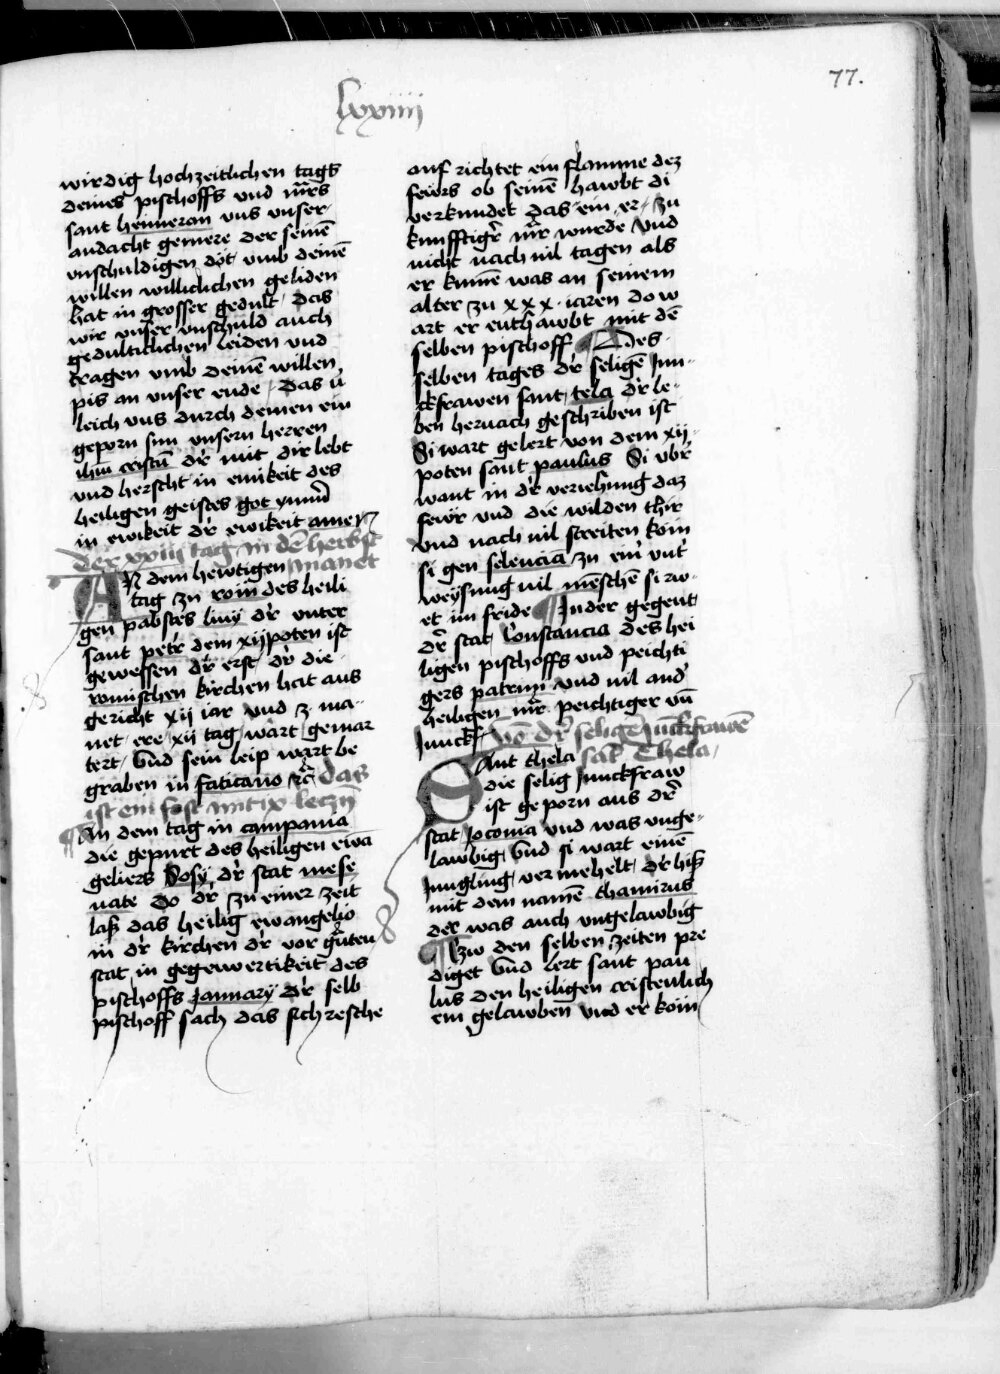 77.
lxxiiii
wirdig hochzeitlichen tags
deines pischoffs vnd mr̄rs
sant heimeran vns vnser
andacht gemere der seinē
vnschuldigen dot vmb deinē
willen williclichen geliden
hat in grosser gedult / das
wir vnser vnschuld auch
gedulticlichen leiden vnd
tragen vmb deinē willen
pis an vnser ende / das v̓
leich vns durch deinen ein
geporn sun vnsern herren
ihm̄ cristū dr̓ mit dir lebt
vnd herscht in einikeit des
heiligen geistes got ymm̄
in ewikeit dr̓ ewikeit amen
der xxiii tag in dē herbst
manet
AN dem hewtigen
tag zu rom des heili
gen pabstes liny dr̓ vnter
sant petr̓ dem xij poten ist
gewessen dr̓ erst dr̓ die
romischen kirchen hat aus
gericht xij iar vnd z ma-
net / ere xij tag / wart gemar
tert / vnd sein leip wart be
graben in faticano rc̄ das
ist ein fest mit ix leczn̄
¶ An dem tag in campania
die gepurt des heiligen ewā
geliers Sosy dr̓ stat mese
nate do dr̓ zu einer zeit
lasz das heilig ewangelio
in dr̓ kirchen dr̓ vor gn̄ten
stat in gegenwertikeit des
pischoffs January dr̓ selb
pischoff sach das sich resche
auf richtet ein flamme dez
fewrs ob seinē hawbt di
verkundet das ein er / zu
kunfftigr̓ mr̄r wurde vnd
nicht nach vil tagen als
er kumē was an seinem
alter zu xxx · iaren do w
art er enthawbt mit dē
selben pischoff ¶ Des
selben tages dr̓ seligē Jun-
ckfrawen sant tela dr̓ le-
ben hernach geschriben ist
Si wart gelert von dem xij
poten sant paulus Si vbr̓
want in dr̓ veriehung daz
fewr vnd die wilden thir
vnd nach vil streiten kom
si gen seleucia zu eim̓ vnt̓
weysung vil meschē si rw-
et im fride ¶ In der gegent
dr̓ stat Constancia des hei
ligen pischoffs vnd peichti
gers patrini vnd vil and̓
heiligen mr̄ peichtiger vn̄
Junckf. Vō dr̓ selige Junckfrawē
sāt Thela
SAnt thela
die selig Junckfraw
ist geporn aus dr̓
stat Jocoma vnd was vnge-
lawbig vnd si wart einē
Jungling ver mehelt dr̓ hisz
mit dem namē thamirus
der was auch vngelawbig
¶ Zw den selben zeiten pre
diget vnd lert sant pau
lus den heiligen cristenlich
en gelawben vnd er kom